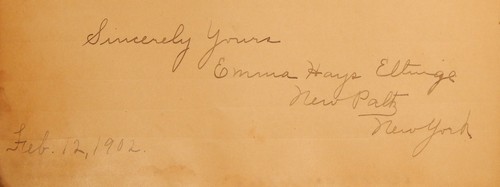 Sincerely Yours
Emma Hays Eltinge
New Paltz
New York
Feb. 12, 1902.